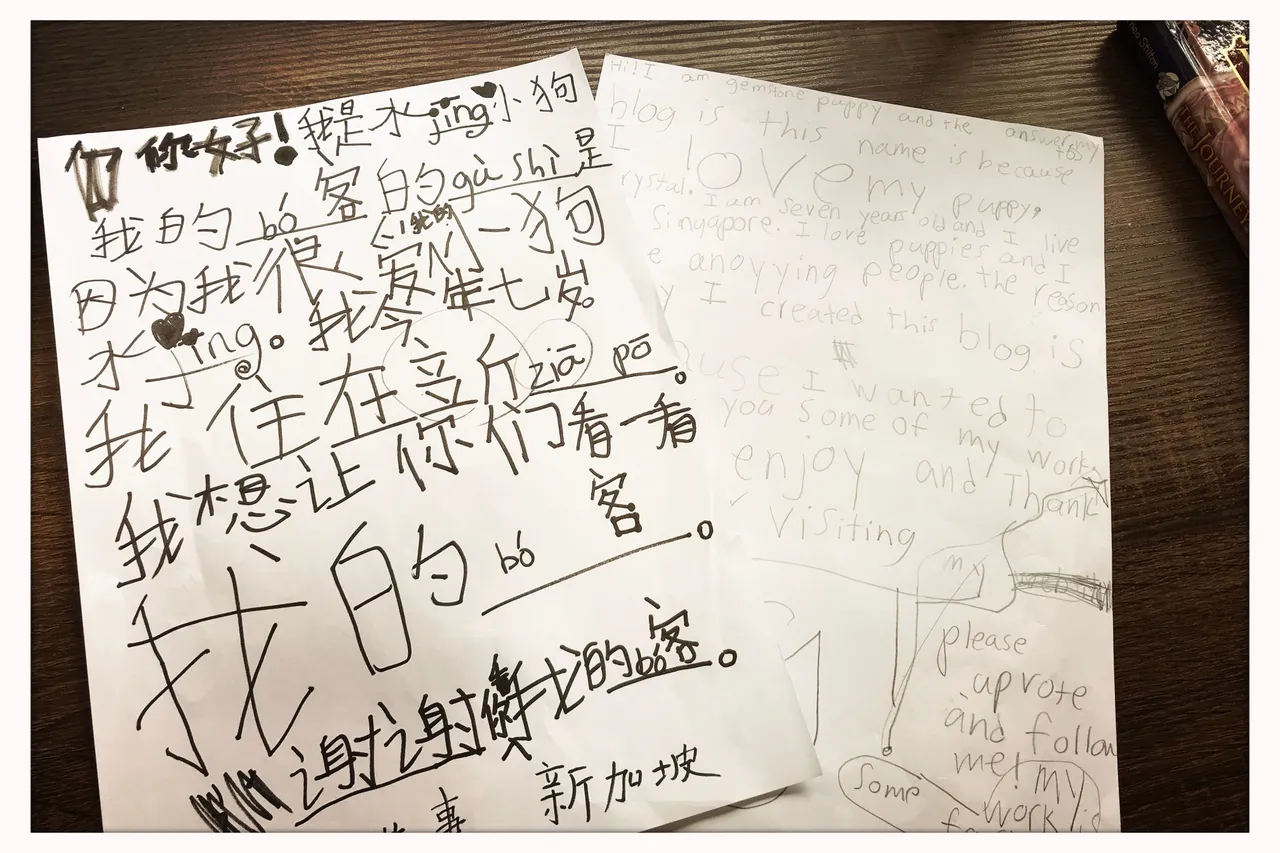 你好!我是水jīng小狗
我的bó客的gù shì是
因为我很爱我的小狗
水jīng。我今年七岁。
我住在立斤ziā pō。
我想让你们看一看
我的bó客。
谢谢你看我的bó客。
事
新加坡
Hi! I am gemstone puppy and the answer my
blog is this name is because
I love my puppy,
rystal. I am seven years old and I live
Singapore. I love puppies and I
e anoyying people. the reason
y I created this blog is
ause I wanted to
you some of my work
enjoy and Thank
visiting
my
please
upvote
and follow
me! my
Some work is
JOURNEY